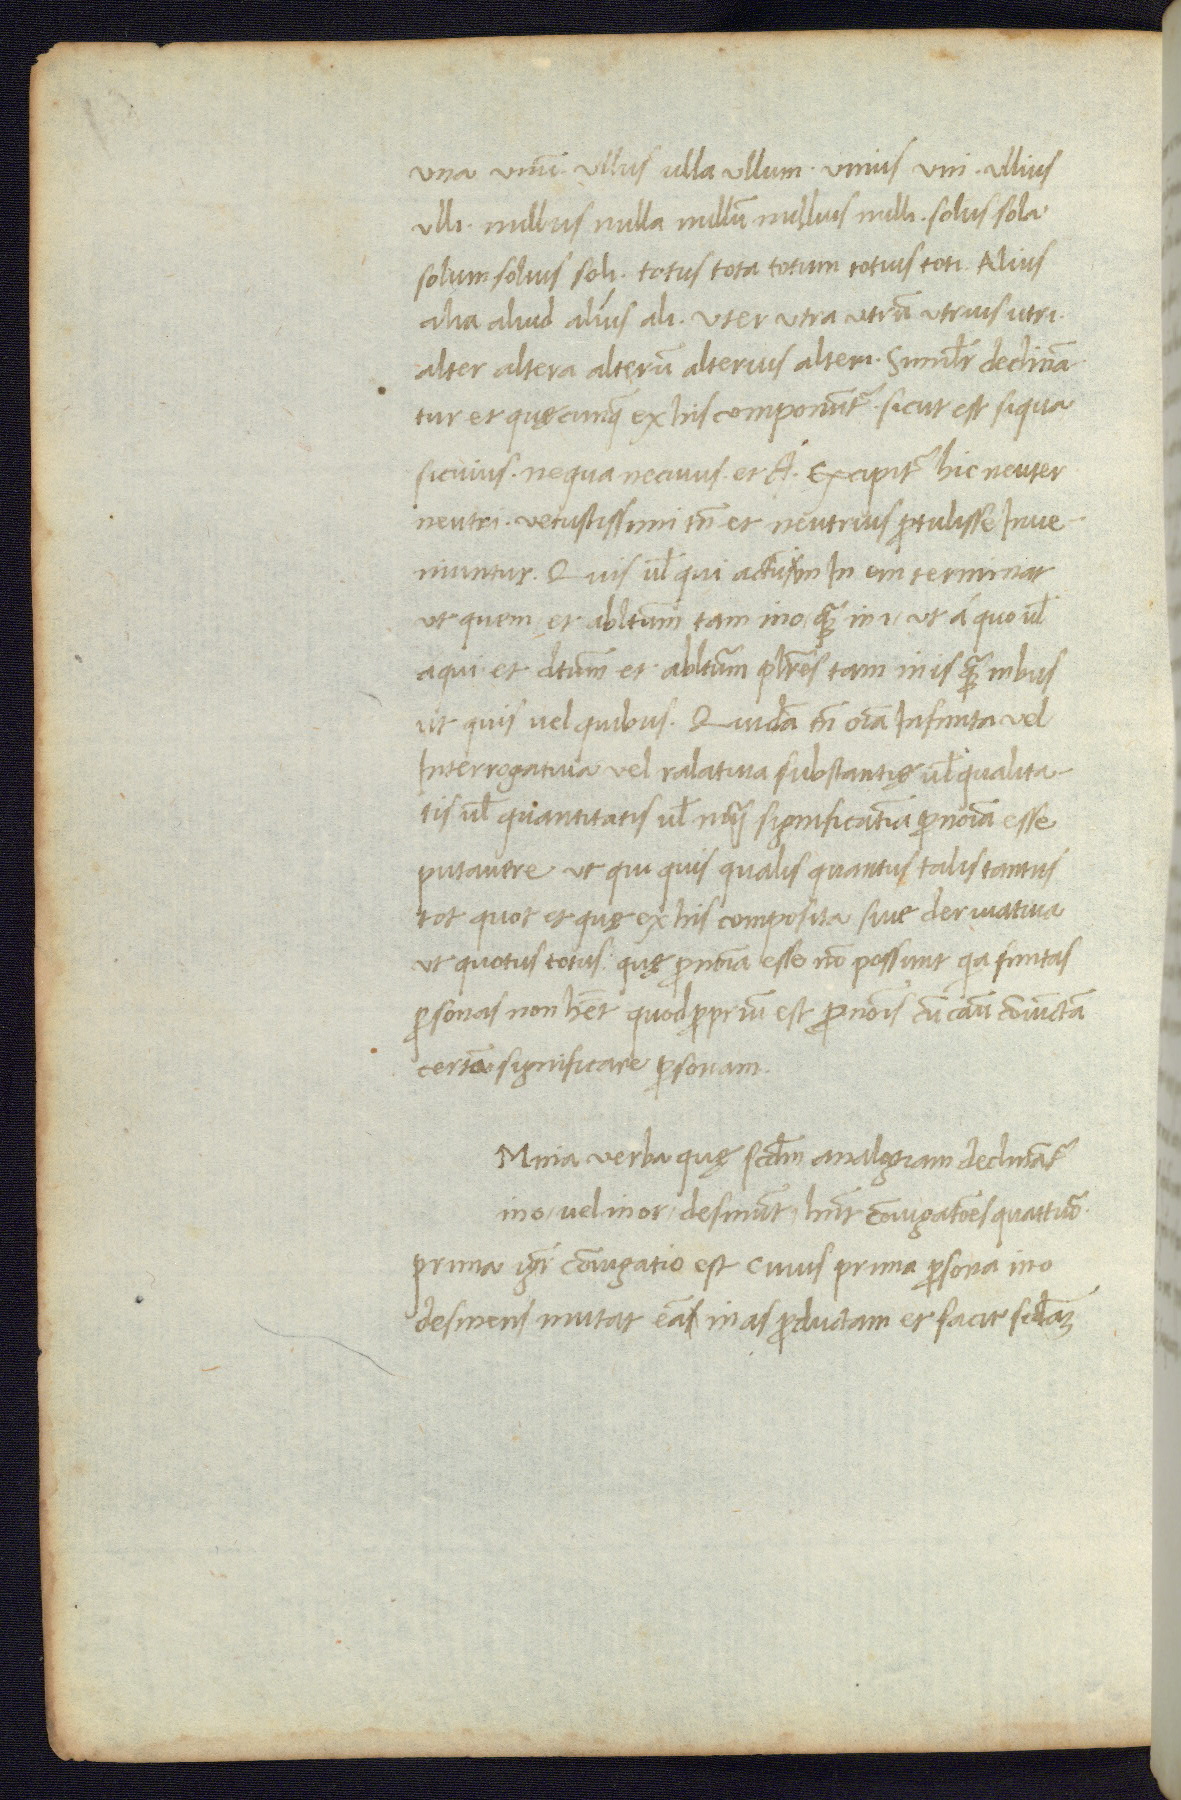 vna vnū. vllus ulla vllum. vnius vni. vllius
vlli. nullus nulla nullū nullius nulli. solus sola
solum solius soli. totus tota totum totius toti. Alius
alia aliud alíus alí. vter vtra vtrū vtrius utri.
alter altera alterū alterius alteri. Similr̄ declinā
tur et quęcunq̄ ex his componūt᷑. sicut est siqua
sicuius. nequa necuius. et Á. Excipit᷑ hic neuter
neutri. vetustissimi tn̄ et neutrius p̄tulisse Inue-
niuntur. Quis ul̄ qui actuum In em terminat
vt quem et abltum̄ tam ino q̄ȝ in i, vt á quo ul̄
aqui et dtum̄ et abltum̄ plr̄es tam in is q̄ȝ inbus
ut quis uel quibus. Quidā tn̄ oīa Infinita vel
Interrogatiua vel ralatiua substantię ul̄ qualita-
tis ul̄ quantitatis ul̄ nūi significatīa p̄noīa esse
putauere vt qui quis qualis quantus talis tantus
tot quot et quę ex his composita siue deriuatiua
vt quotus totus: quę p̄noīa esse nō possunt q̄a finitas
p̄sonas non hēt quod p̄priū est p̄nōis cū cāu cōiūctā
certā significare p̄sonam.
Mnia verba quę scd̄m analogiam declināt᷑
in o, vel in or, desinūt, hn̄t cōiugatōes quattuō.
prima igr̄ cōiugatio est cuius prima p̄sona in o
desinens mutat eā in as p̄ductam et facit scd̄aȝ